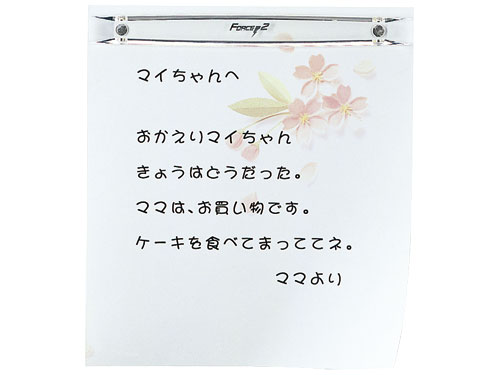 FORCE 2
マイちゃんへ
おかえりマイちゃん
きょうはどうだった。
ママは、お買い物です。
ケーキを食べてまっててネ。
ママより